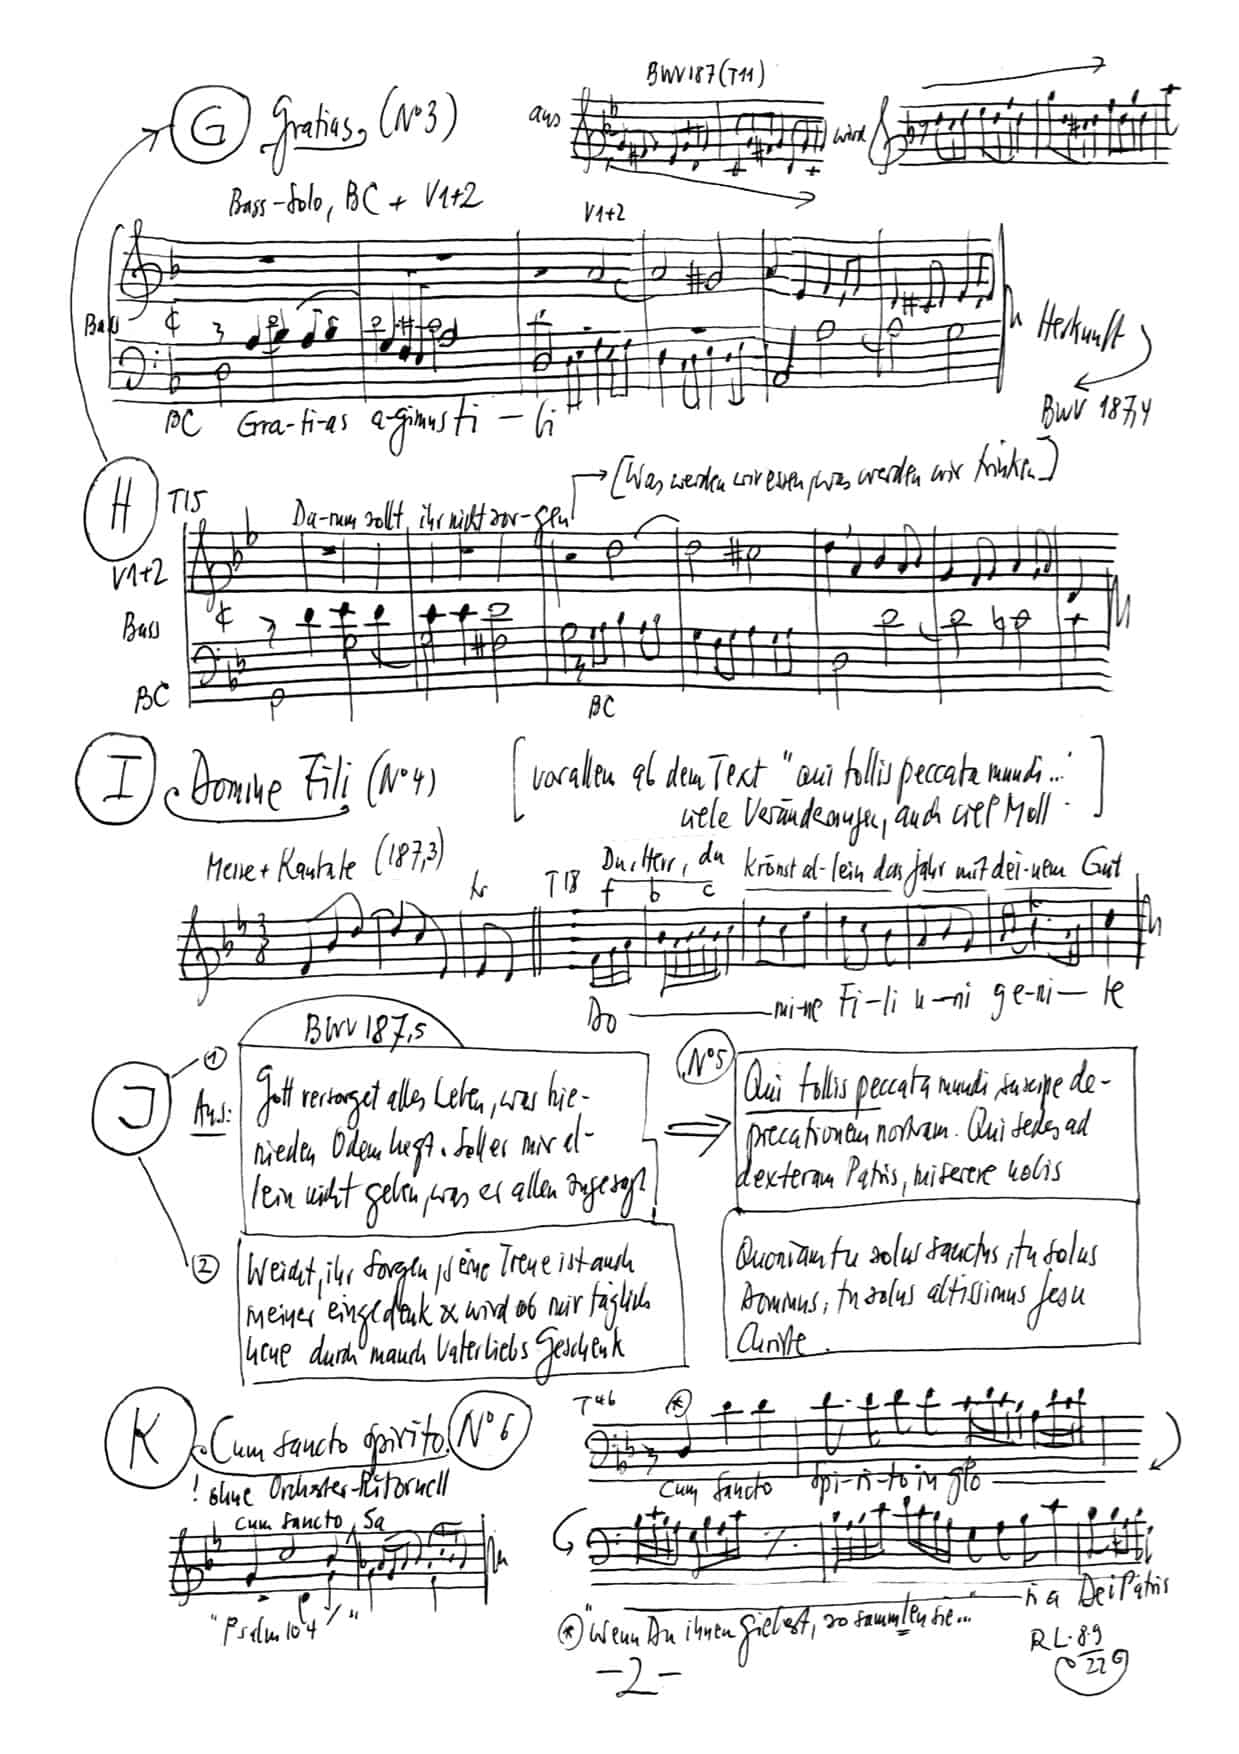 BWV 187 (T11)
G Gratias, (N°3)
aus
wird
Bass-Solo, BC + V1+2
V1+2
Bass
BC Gra-ti-as a-gimus ti - bi
Herkunft
BWV 187,4
H T15
[Was werden wir essen, was werden wir trinken]
Da-rum sollt ihr nicht sor-gen
V1+2
Bass
BC
BC
I Domine Fili (N°4)
[vor allen ab dem Text "Qui tollis peccata mundi..."
viele Veränderungen, auch viel Moll.]
Messe + Kantate (187,3)
tr
T18
Du, Herr, du krönst al-lein das Jahr mit dei-nem Gut
f b c
Do mi-ne Fi-li u-ni ge-ni-te
BWV 187,5
J
① Aus:
Gott versorget alles Leben, was hie-
nieden Odem hegt. Sollt er mir al-
lein nicht geben, was er allen zugesagt
N°5
Qui tollis peccata mundi, suscipe de-
precationem nostram. Qui sedes ad
dexteram Patris, miserere nobis
②
Weicht, ihr Sorgen, seine Treue ist auch
meiner eingedenk & wird ob mir täglich
neue durch manch Vaterliebs Geschenk
Quoniam tu solus sanctus, tu solus
Dominus, tu solus altissimus Jesu
Christe.
K Cum sancto spirito. N°6
! ohne Orchester-Ritornell
cum sancto Sa
"Psalm 104"
T46
(*)
cum sancto Spi-ri-to in glo
ri a Dei Patris
(*) "Wenn Du ihnen giebest, so sammlen sie..."
R L. 8.9
22
-2-